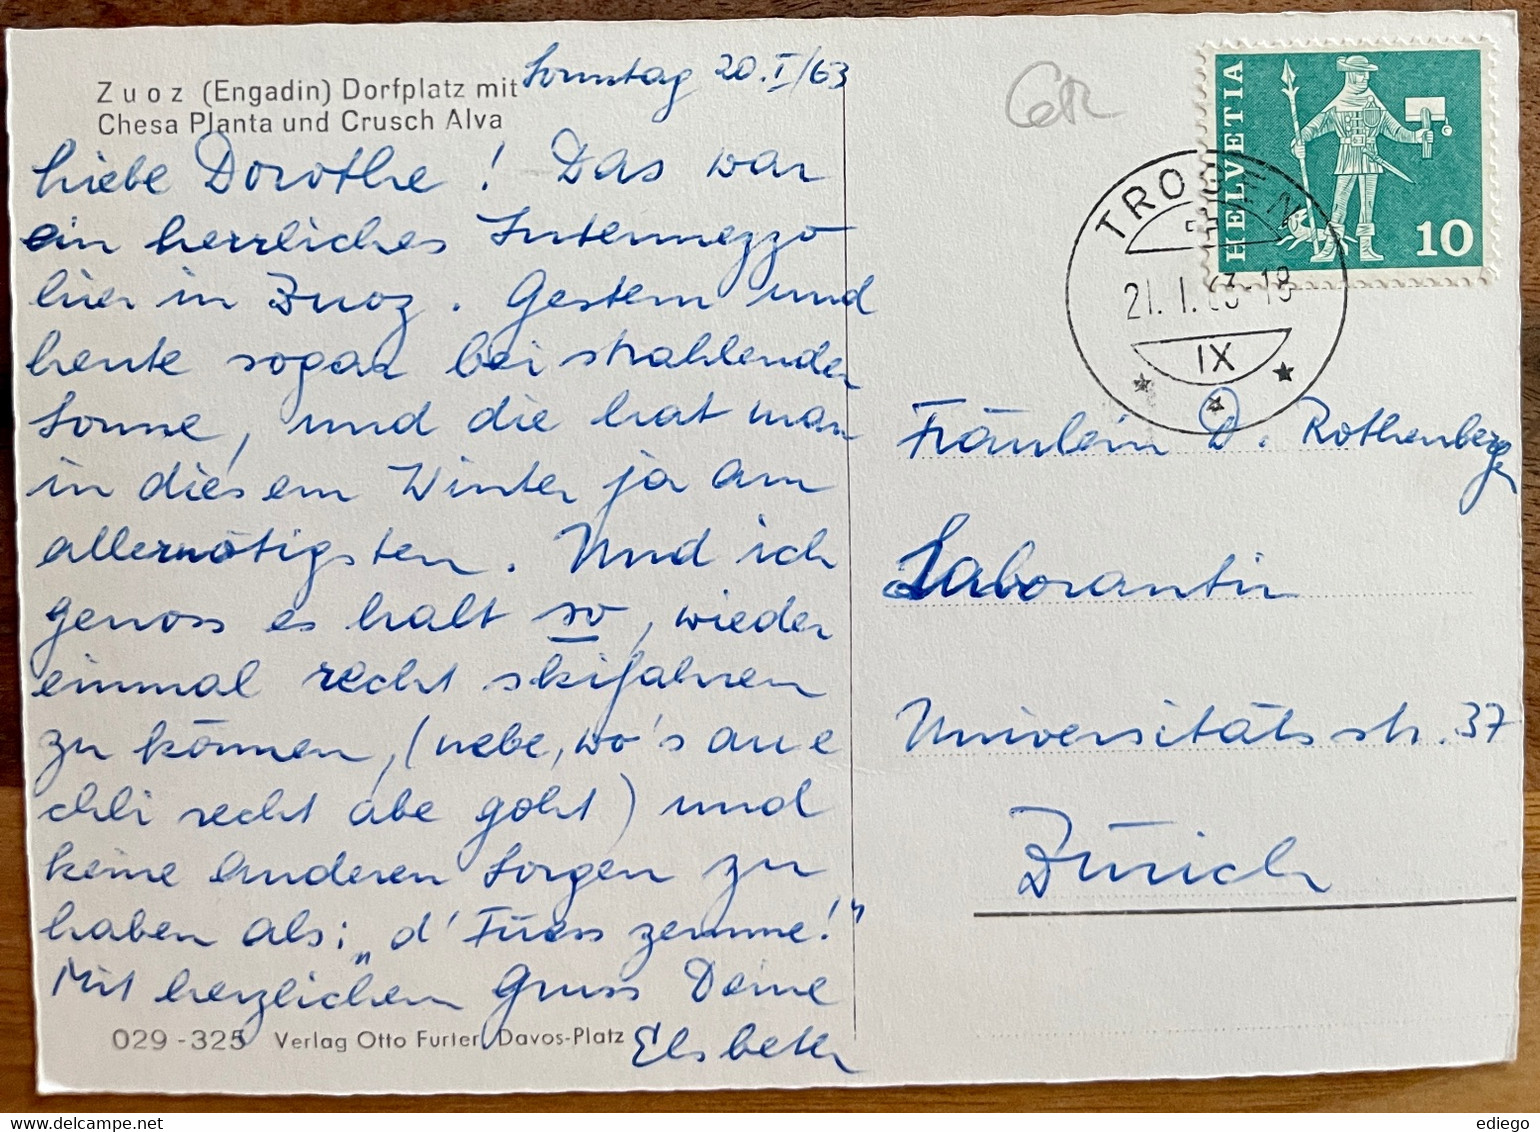 Zuoz (Engadin) Dorfplatz mit
Chesa Planta und Crusch Alva
Sonntag 20.I/63
Liebe Dorothe! Das war
ein herrliches Intermezzo
hier in Zuoz. Gestern und
heute sogar bei strahlender
Sonne, und die hat man
in diesem Winter ja am
allernötigsten. Und ich
genoss es halt so, wieder
einmal recht skifahren
zu können, (nebe, wo's au e
chli recht abe goht) und
keine anderen Sorgen zu
haben als: „d'Füess zemme!"
Mit herzlichem Gruss Deine
Elsbeth
029-325 Verlag Otto Furter, Davos-Platz
HELVETIA
10
TROGEN
21.1.63-18
IX
Fräulein D. Rothenberger
Laborantin
Universitätsstr. 37
Zürich
ediego